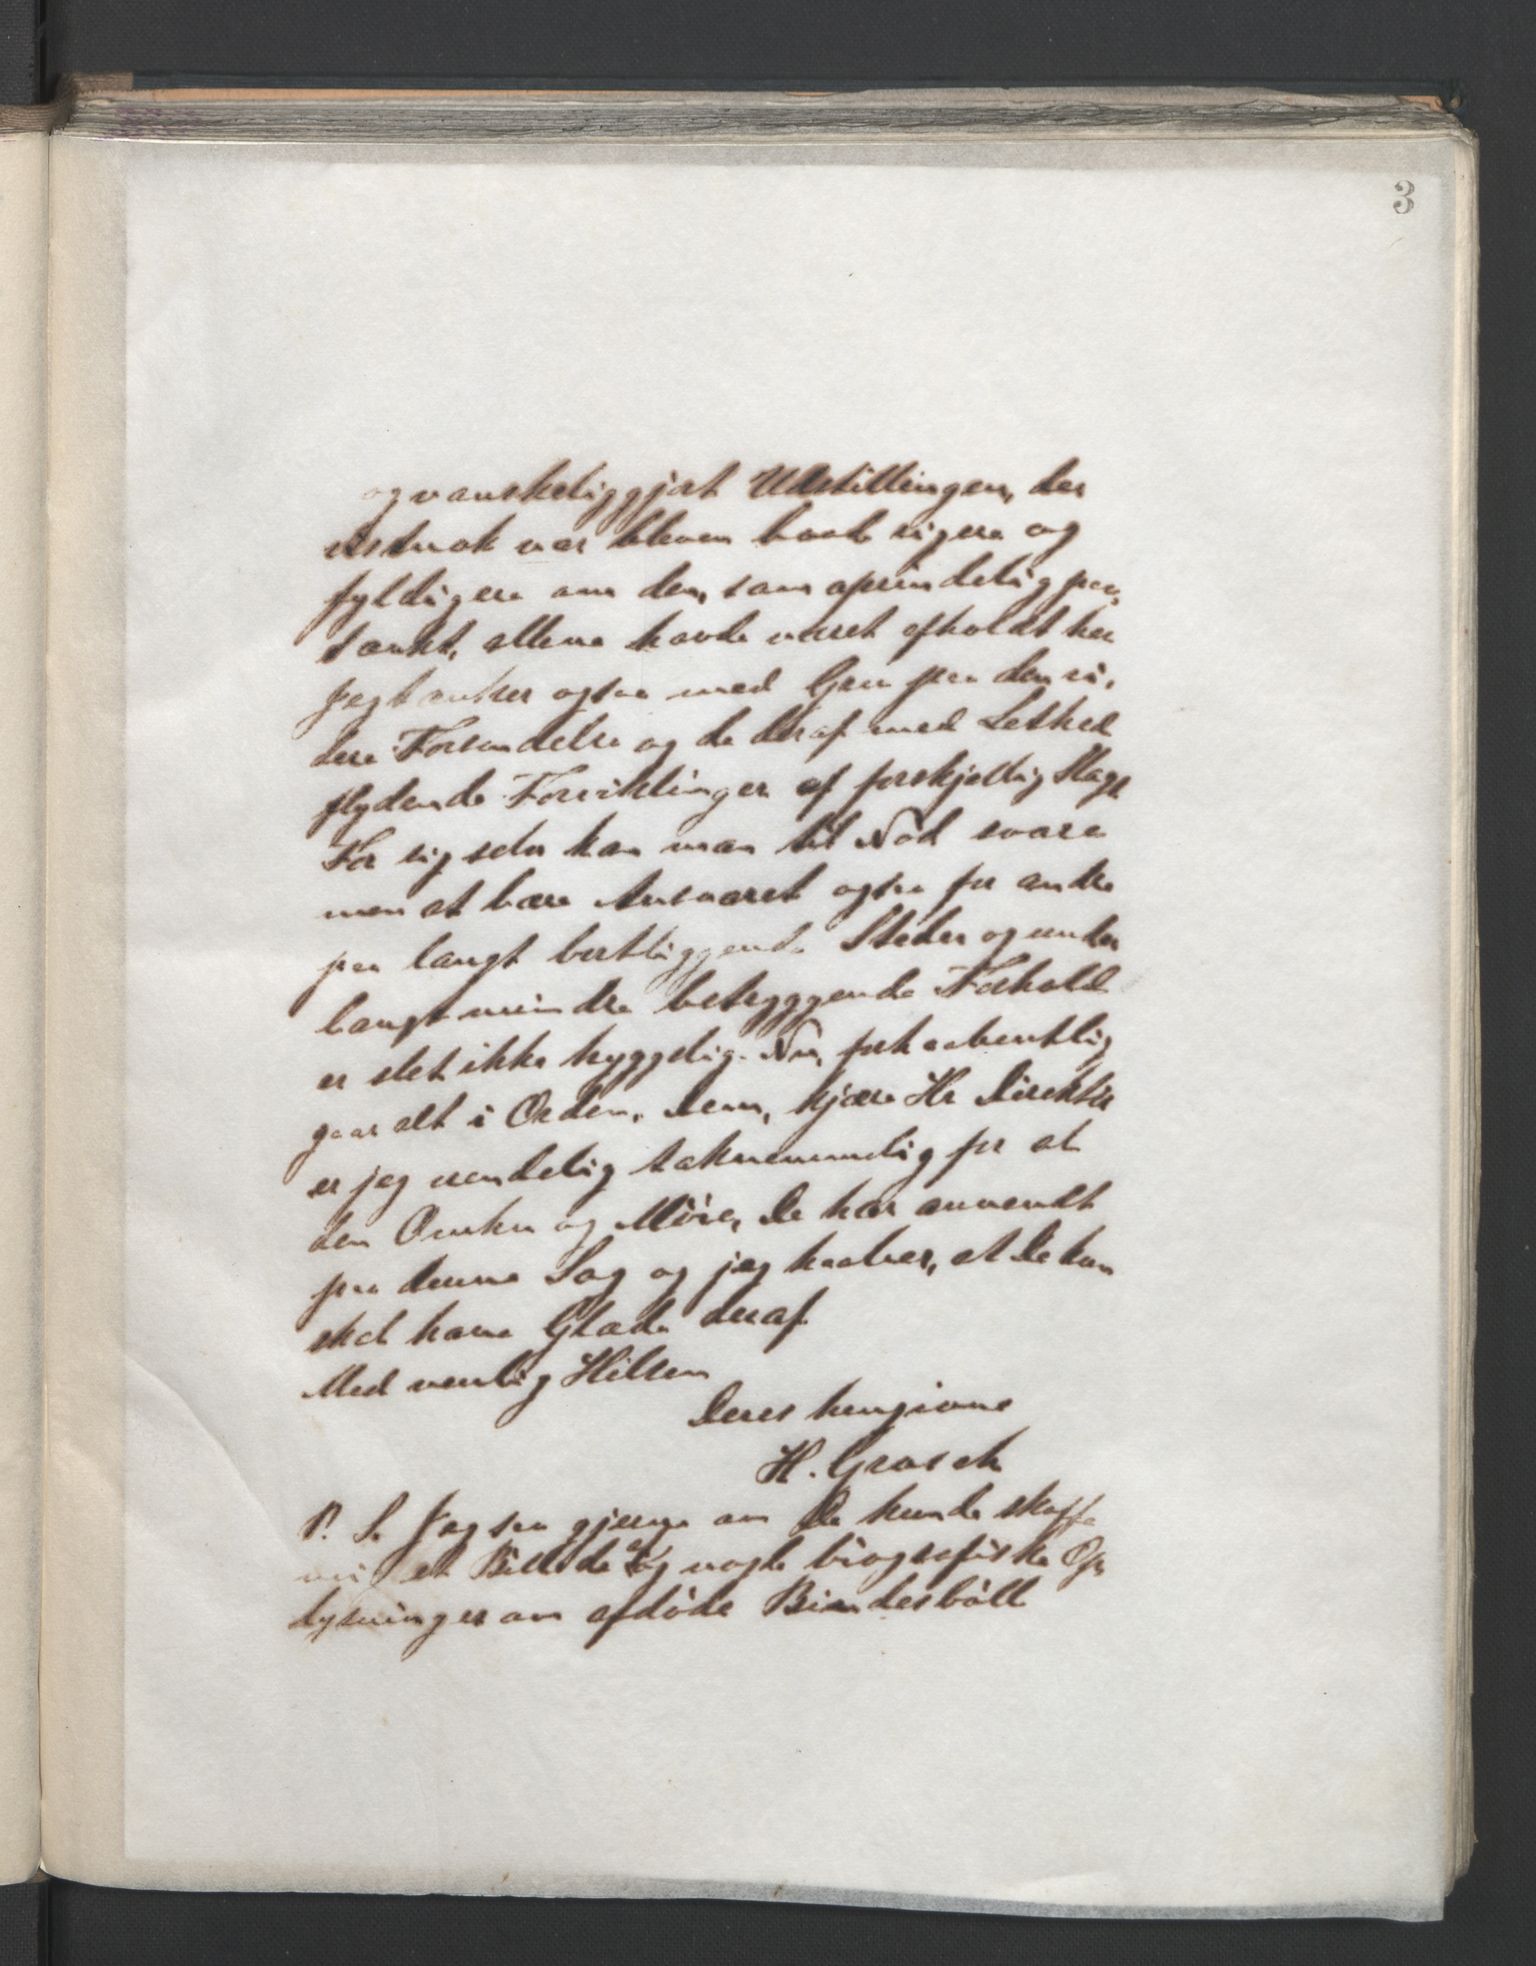 3
og vanskeliggjort Udstillingen, der
vistnok var bleven baade rigere og
fyldigere om den, som oprindelig paa
tænkt, allene havde været afholdt her
Jeg tænker ogsaa med Gru paa den vi,
dere Forsendelse og de deraf med Lethed
flydende Forviklinger af forskjellig Slags
For sig selv kan man til Nød svare
men at bære Ansvaret ogsaa for andre
paa langt bortliggende Steder og under
langt mindre betryggende Forhold
er slet ikke hyggelig. Nu, forhaabentlig
gaar alt i Orden. Dem, kjære Hr Direktør
er jeg uendelig taknemmelig for al
den Omhu og Møie, De har anvendt
paa denne Sag og jeg haaber, at De kun
skal have Glæde deraf.
Med venlig Hilsen
Deres hengivne
H. Grosch
P. S. Jeg saa gjerne om De kunde skaffe
mig et Billede af og nogle biografiske Op
lysninger om afdøde Bindesbøll